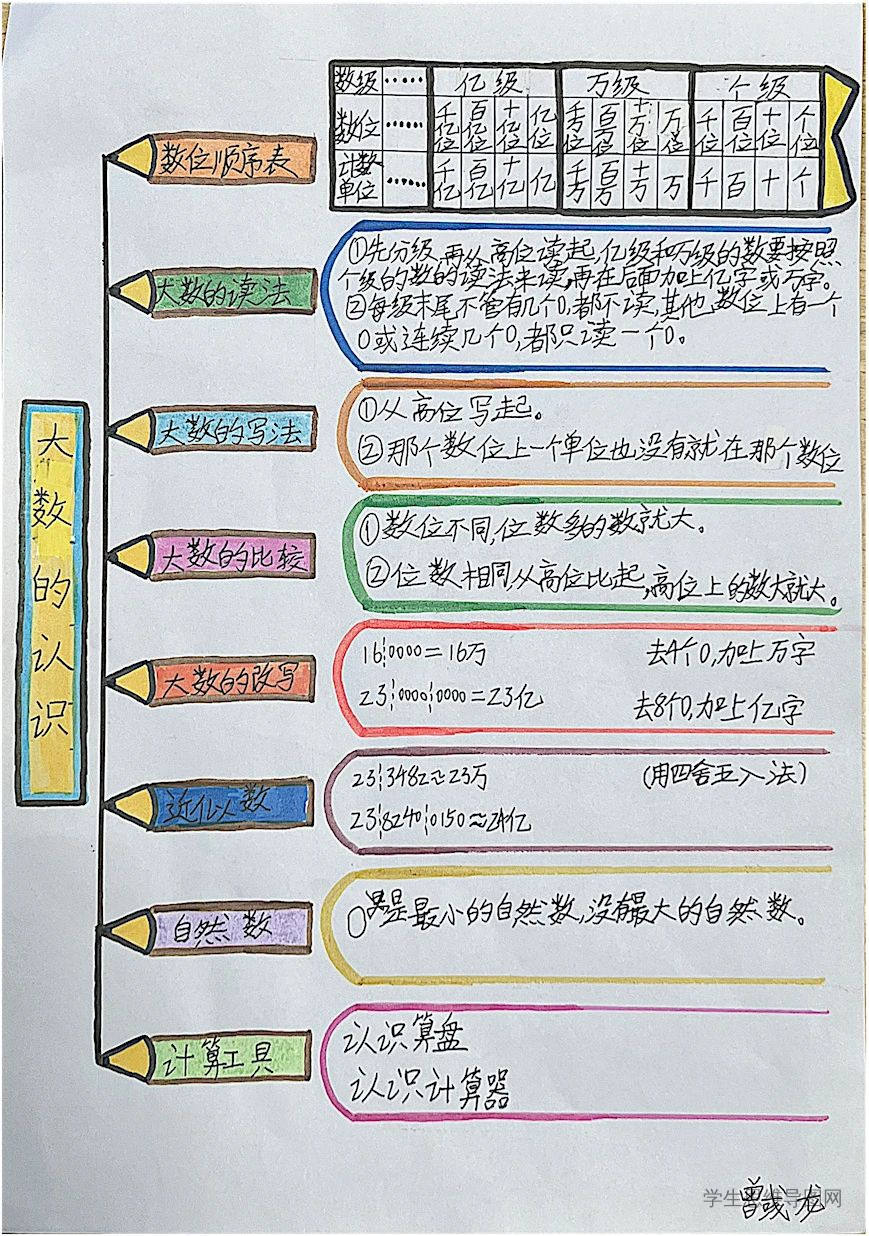 大数的认识
数位顺序表
数级 …… 亿级 万级 个级
数位 …… 千亿位 百亿位 十亿位 亿位 千万位 百万位 十万位 万位 千位 百位 十位 个位
计数单位 …… 千亿 百亿 十亿 亿 千万 百万 十万 万 千 百 十 个
大数的读法
①先分级,再从高位读起,亿级和万级的数要按照
个级的数的读法来读,再在后面加上亿字或万字。
②每级末尾不管有几个0,都不读,其他数位上有一个
0或连续几个0,都只读一个0。
大数的写法
①从高位写起。
②那个数位上一个单位也没有就在那个数位
大数的比较
①数位不同,位数多的数就大。
②位数相同,从高位比起,高位上的数大就大。
大数的改写
16¦0000=16万 去4个0,加上万字
23¦0000¦0000=23亿 去8个0,加上亿字
近似数
23¦3482≈23万 (用四舍五入法)
23¦8240¦0150≈24亿
自然数
0是最小的自然数,没有最大的自然数。
计算工具
认识算盘
认识计算器
学生思维导图网
曾 龙